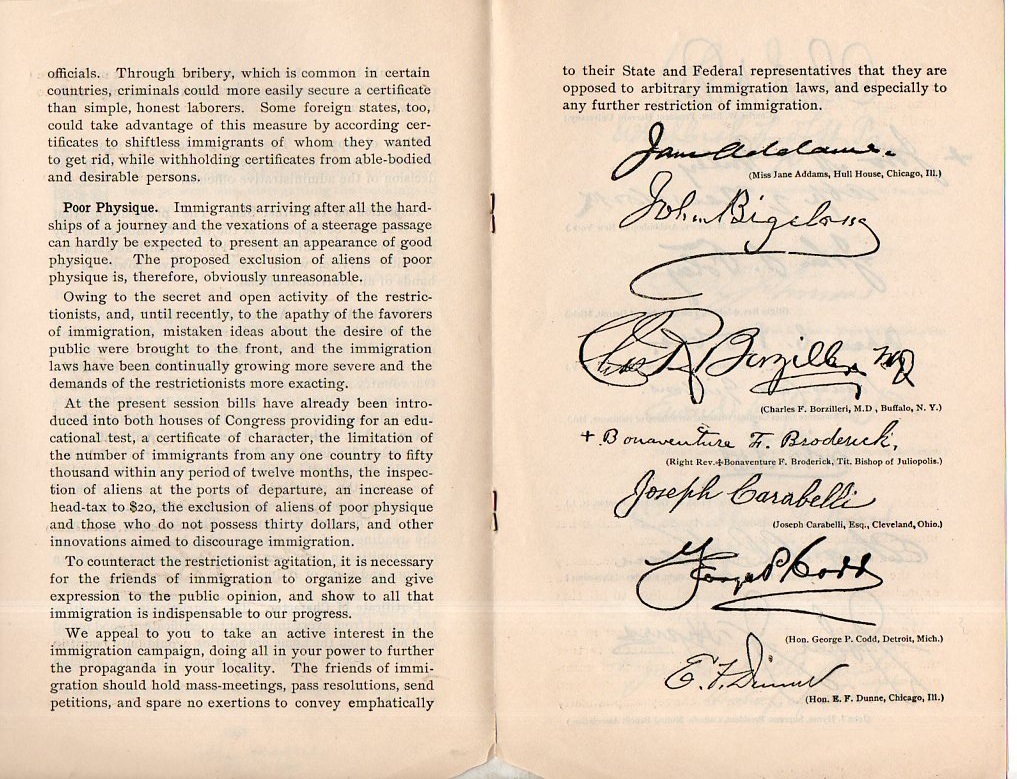 officials. Through bribery, which is common in certain
countries, criminals could more easily secure a certificate
than simple, honest laborers. Some foreign states, too,
could take advantage of this measure by according cer-
tificates to shiftless immigrants of whom they wanted
to get rid, while withholding certificates from able-bodied
and desirable persons.
Poor Physique. Immigrants arriving after all the hard-
ships of a journey and the vexations of a steerage passage
can hardly be expected to present an appearance of good
physique. The proposed exclusion of aliens of poor
physique is, therefore, obviously unreasonable.
Owing to the secret and open activity of the restric-
tionists, and, until recently, to the apathy of the favorers
of immigration, mistaken ideas about the desire of the
public were brought to the front, and the immigration
laws have been continually growing more severe and the
demands of the restrictionists more exacting.
At the present session bills have already been intro-
duced into both houses of Congress providing for an edu-
cational test, a certificate of character, the limitation of
the number of immigrants from any one country to fifty
thousand within any period of twelve months, the inspec-
tion of aliens at the ports of departure, an increase of
head-tax to $20, the exclusion of aliens of poor physique
and those who do not possess thirty dollars, and other
innovations aimed to discourage immigration.
To counteract the restrictionist agitation, it is necessary
for the friends of immigration to organize and give
expression to the public opinion, and show to all that
immigration is indispensable to our progress.
We appeal to you to take an active interest in the
immigration campaign, doing all in your power to further
the propaganda in your locality. The friends of immi-
gration should hold mass-meetings, pass resolutions, send
petitions, and spare no exertions to convey emphatically
to their State and Federal representatives that they are
opposed to arbitrary immigration laws, and especially to
any further restriction of immigration.
Jane Addams.
(Miss Jane Addams, Hull House, Chicago, Ill.)
John Bigelow
Chas R Borzilleri MD
(Charles F. Borzilleri, M.D , Buffalo, N. Y.)
+ Bonaventure F. Broderick,
(Right Rev.+Bonaventure F. Broderick, Tit. Bishop of Juliopolis.)
Joseph Carabelli
(Joseph Carabelli, Esq., Cleveland, Ohio.)
George P Codd
(Hon. George P. Codd, Detroit, Mich.)
E. F. Dunne
(Hon. E. F. Dunne, Chicago, Ill.)